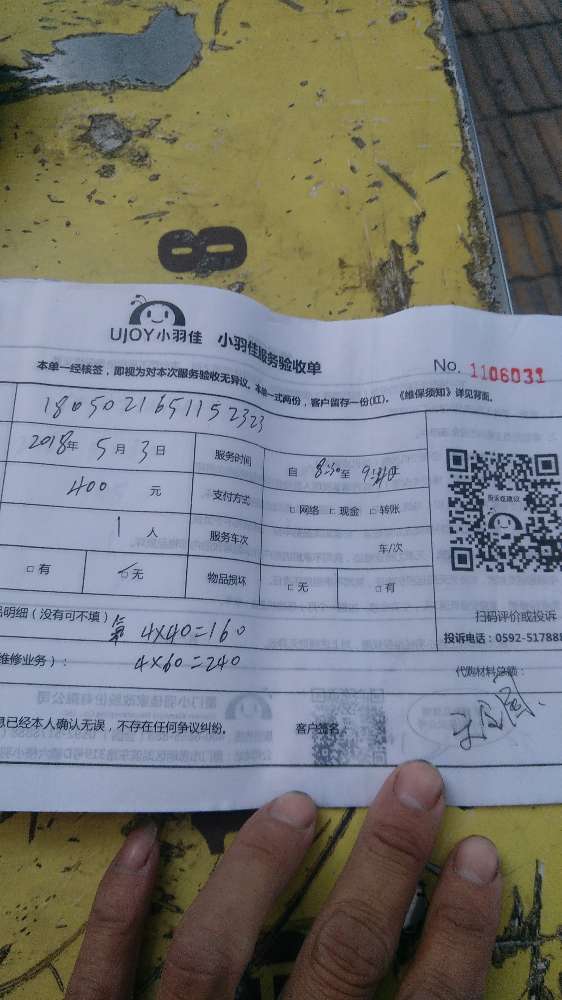 8
UJOY小羽佳 小羽佳服务验收单
No. 1106031
本单一经核签，即视为对本次服务验收无异议。本单一式两份，客户留存一份(红)。《维保须知》详见背面。
180502165115 2323
2018年 5月 3日 服务时间 自 8:30至
400 元 支付方式 □网络 □现金 □转账
1人 服务车次 车/次
□有 □无 物品损坏 □无 □有
扫码评价或投诉
投诉电话：0592-517888
品明细（没有可不填） 氟 4×40=160
维修业务）： 4×60=240
代购材料总额：
息已经本人确认无误，不存在任何争议纠纷。 客户签名：